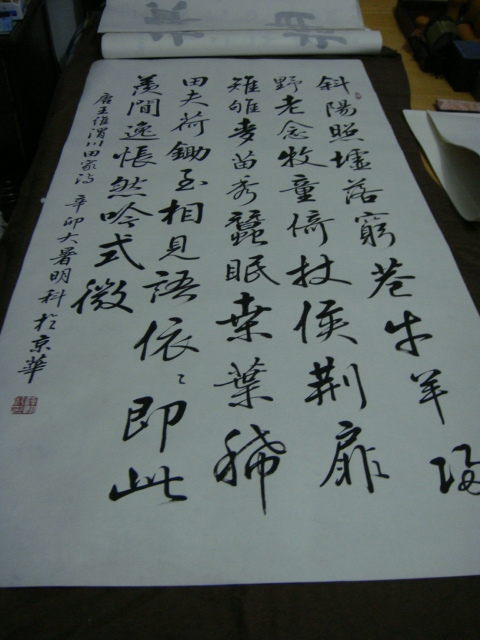 斜陽照墟落窮巷牛羊歸
野老念牧童倚杖候荊扉
雉雊麥苗秀蠶眠桑葉稀
田夫荷鋤至相見語依〻即此
羨閒逸悵然吟式微
唐王維渭川田家詩 辛卯大暑明科於京華